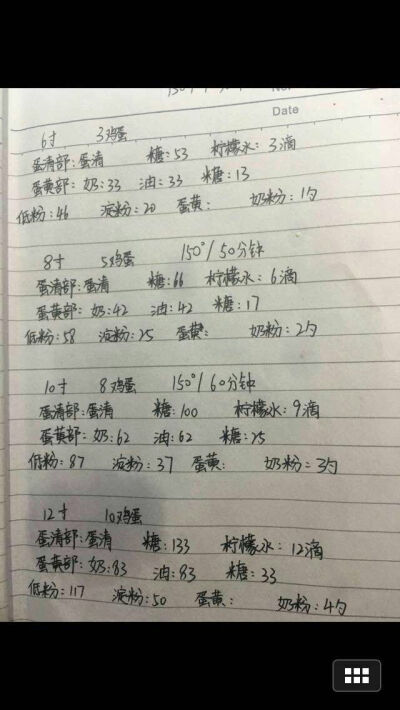 Date
6寸 3鸡蛋
蛋清部:蛋清 糖:53 柠檬水:3滴
蛋黄部:奶:33 油:33 糖:13
低粉:46 淀粉:20 蛋黄: 奶粉:1勺
8寸 5鸡蛋 150°/50分钟
蛋清部:蛋清 糖:66 柠檬水:6滴
蛋黄部:奶:42 油:42 糖:17
低粉:58 淀粉:25 蛋黄: 奶粉:2勺
10寸 8鸡蛋 150°/60分钟
蛋清部:蛋清 糖:100 柠檬水:9滴
蛋黄部:奶:62 油:62 糖:25
低粉:87 淀粉:37 蛋黄: 奶粉:3勺
12寸 10鸡蛋
蛋清部:蛋清 糖:133 柠檬水:12滴
蛋黄部:奶:83 油:83 糖:33
低粉:117 淀粉:50 蛋黄: 奶粉:4勺